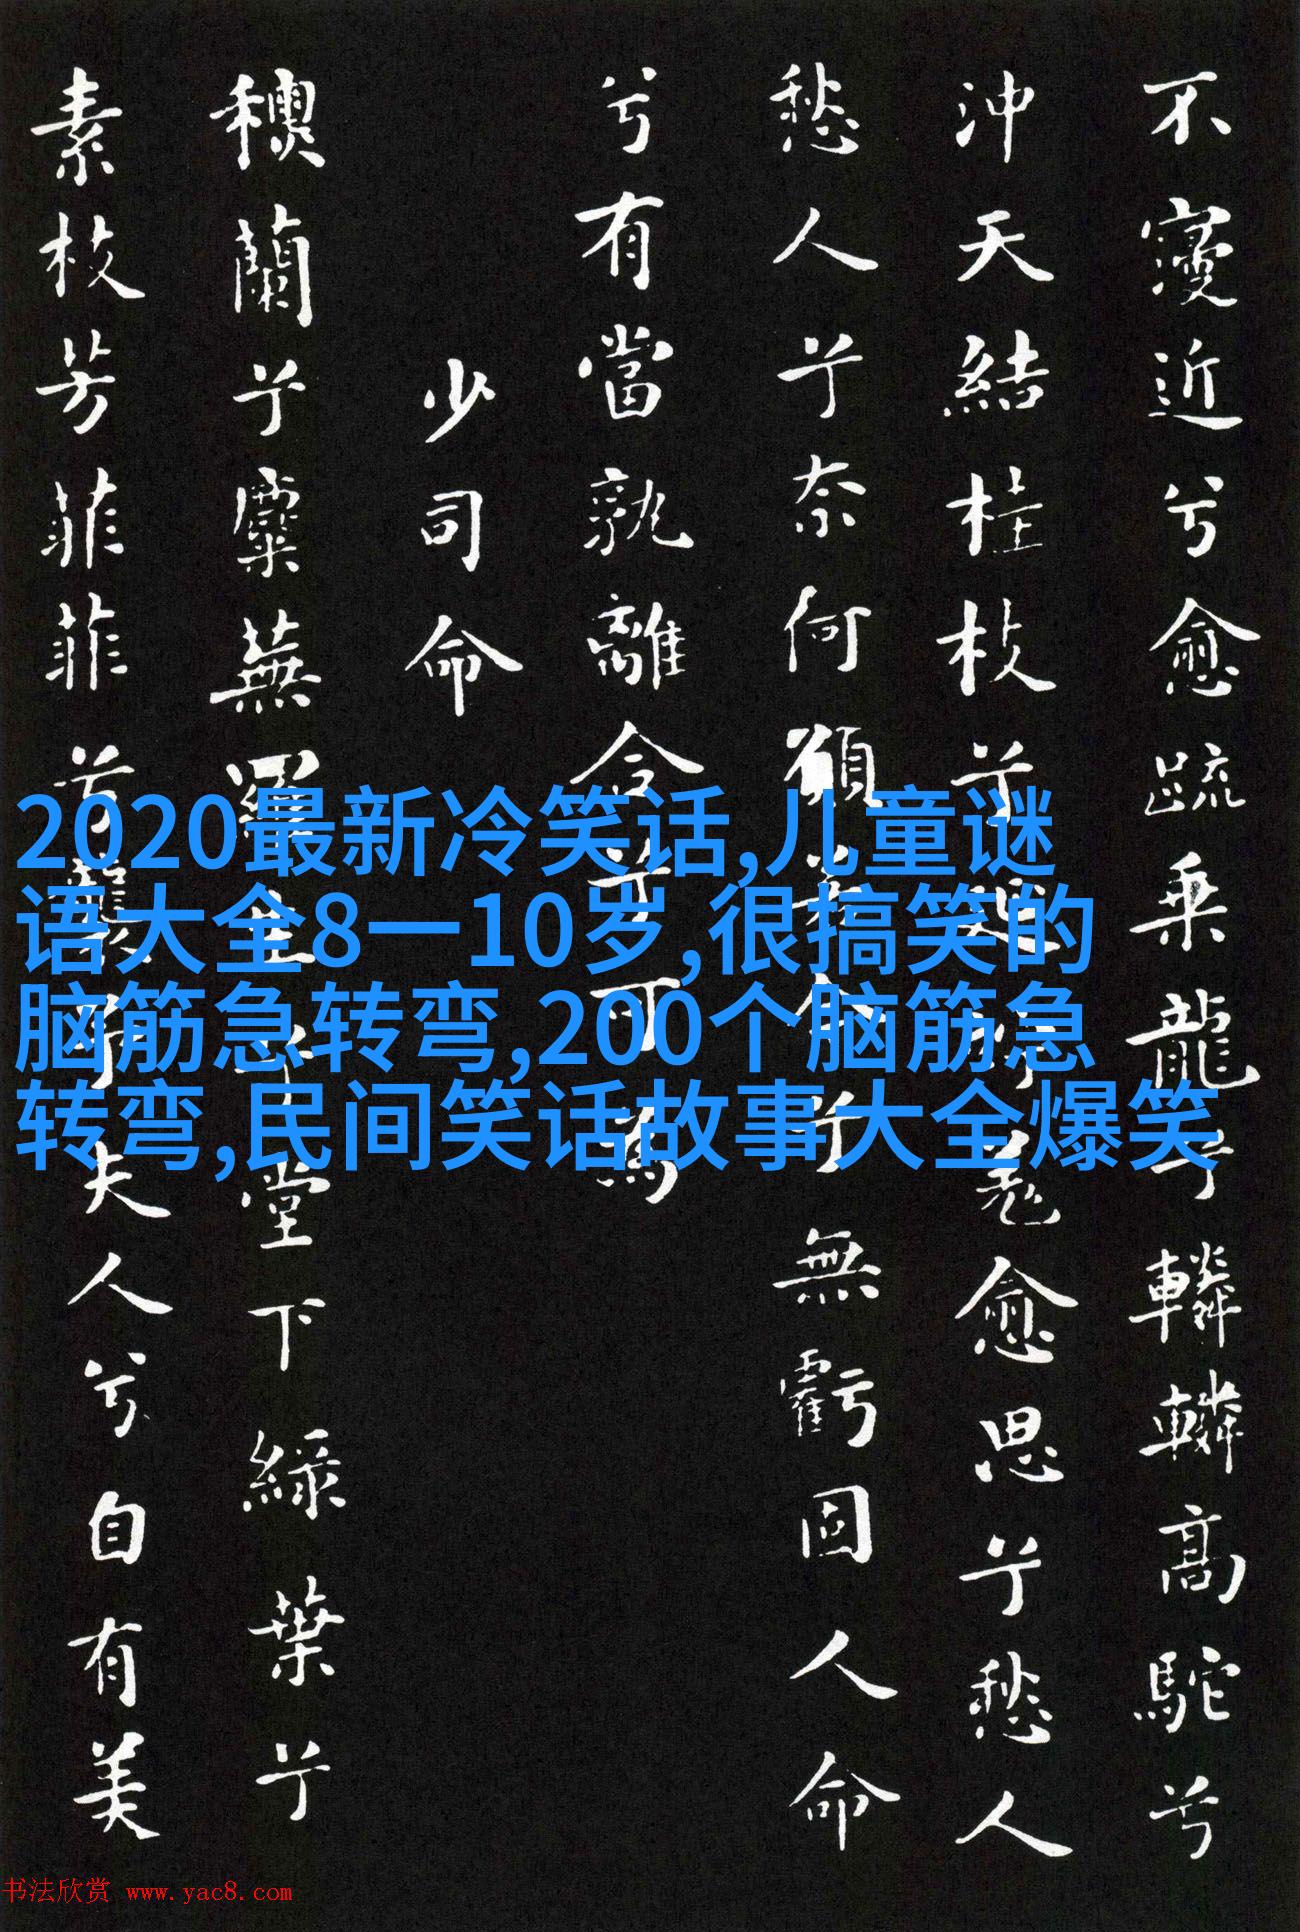 不寖近兮愈疏乘龍兮轔轔高駝兮
沖天結桂枝兮延竚羌愈思兮愁人
愁人兮奈何願若今兮無虧固人命
兮有當孰離合兮可為
少司命
蘭兮麋蕪羅生兮堂下綠葉兮
素枝芳菲菲兮襲予夫人兮自有美
2020最新冷笑话,儿童谜
语大全8一10岁,很搞笑的
脑筋急转弯,200个脑筋急
转弯,民间笑话故事大全爆笑
书法欣赏 www.yac8.com